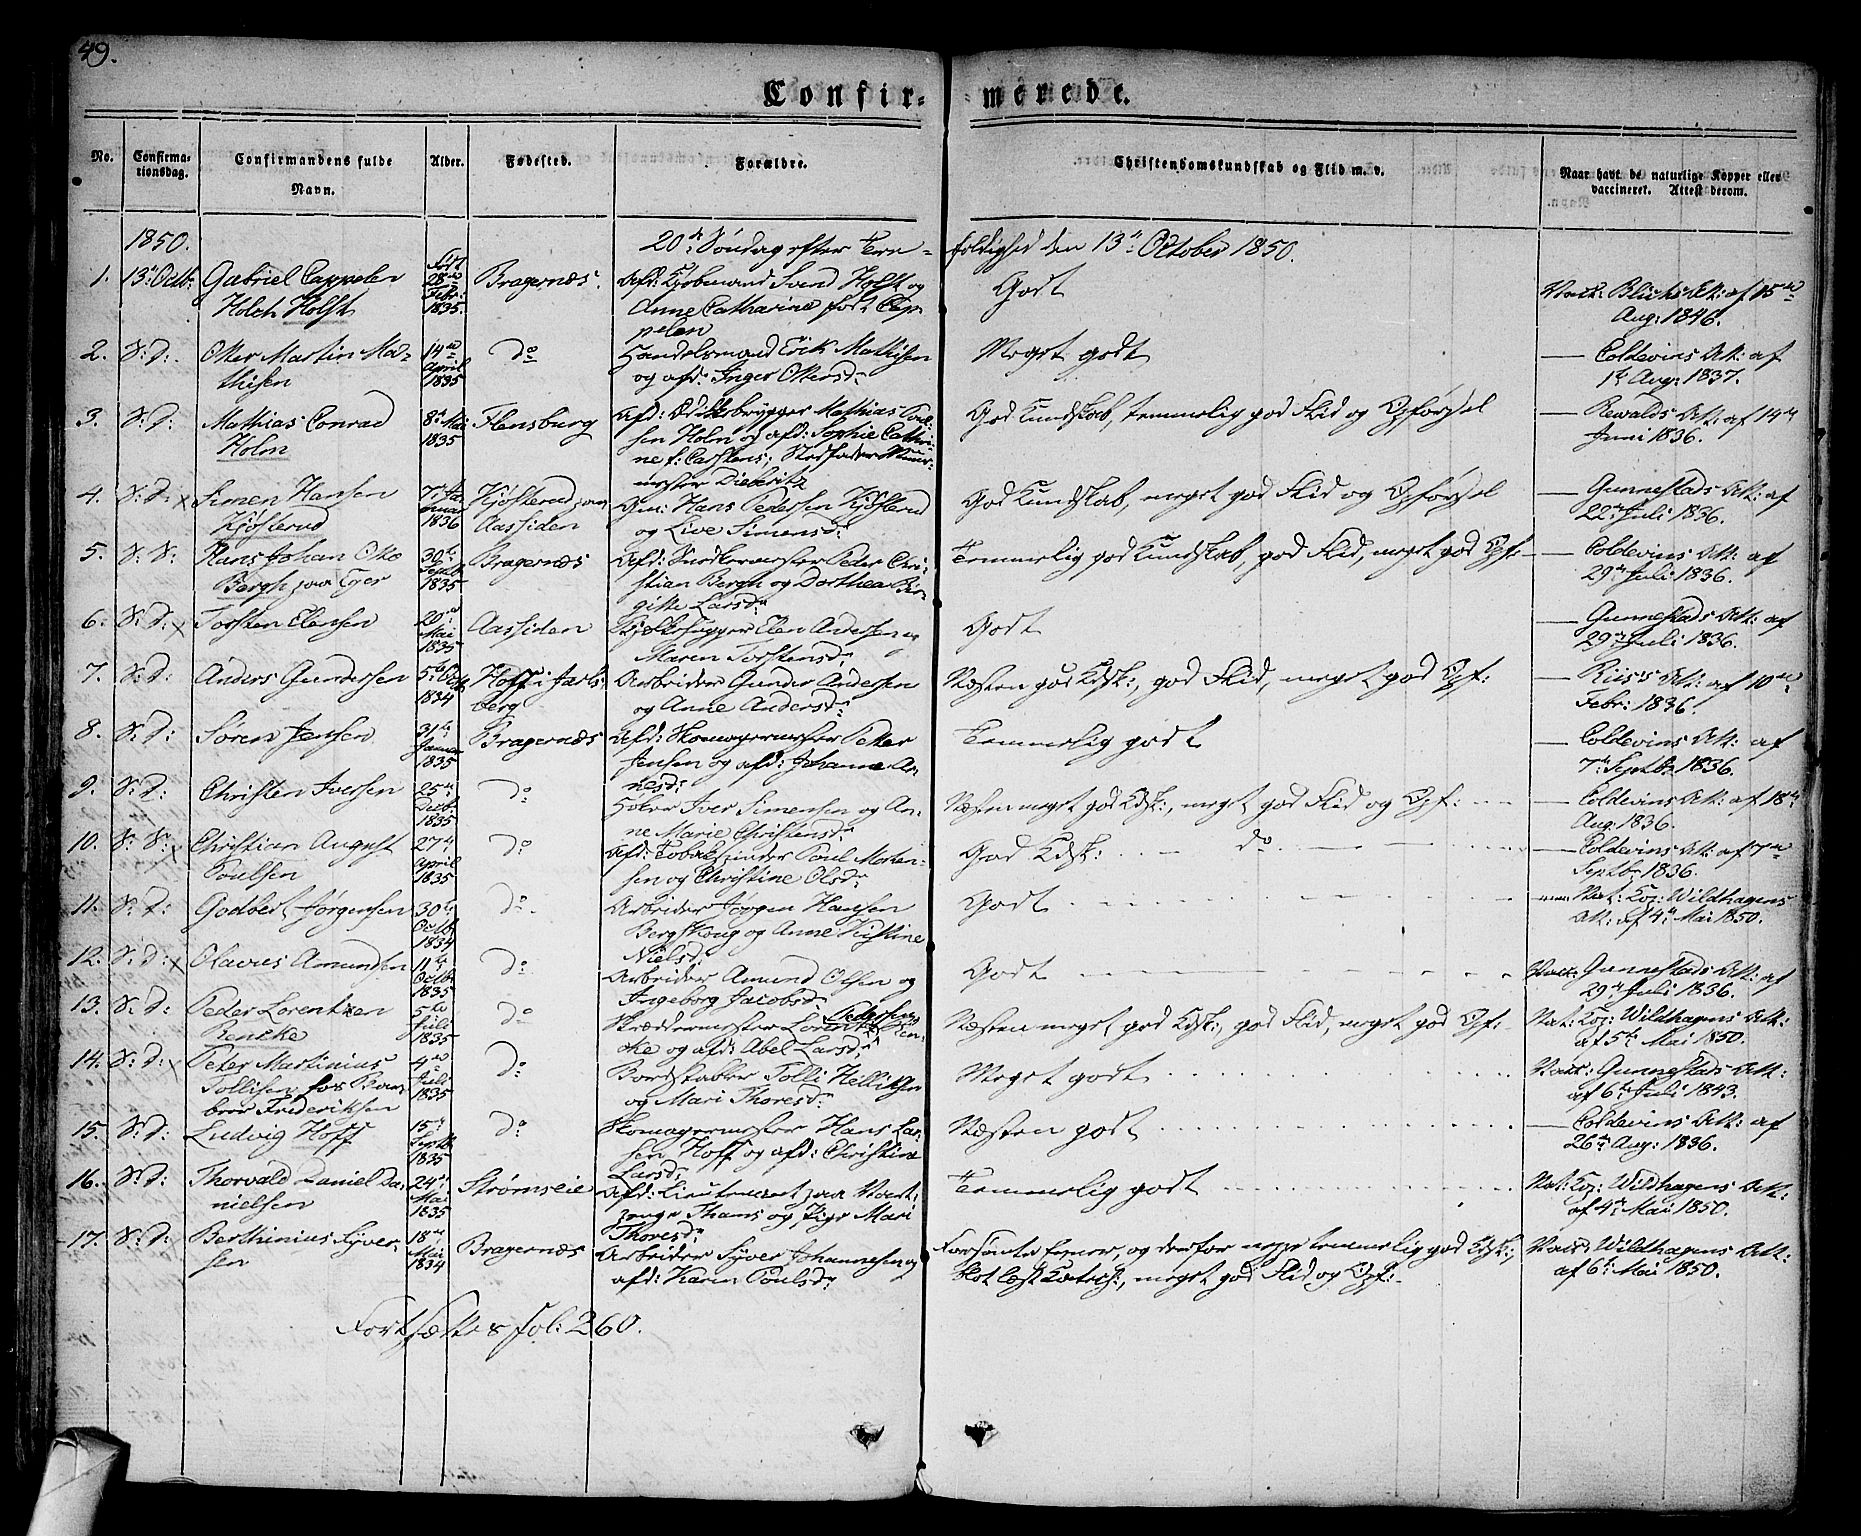 49.
Confir-
merede.
No.
Confirma-
tionsdag.
Confirmandens fulde
Navn.
Alder.
Fødested.
Forældre.
Christendomskundskab og Flid m. v.
Naar havt de naturlige Kopper eller
vaccineret. Attest derom.
1850.
20de Søndag efter Tre-
foldighed den 13de October 1850.
1. 13de Octb: Gabriel Cappelen
Holch Holst
født
28de
Febr:
1835.
Bragernæs.
Afd: Kjøbmand Svend Holst og
Anne Catharine født Cap-
pelen
Godt
Vacc: Blichs Att: af 15de
Aug: 1846.
2. S: D: Otter Martin Ma-
thisen
14de
April
1835
do
Handelsmand Erik Mathisen
og afd: Inger Ottersd:
Meget godt
— Coldevins Att: af
1ste Aug: 1837.
3. S: D: Mathias Conrad
Holm
8de Mai
1835
Flensburg
Afd: Mathias Poul-
sen Holm og afd: Sophie Cathri-
ne f: Carstens; Stedfader Muur-
mester Dieberitz
God Kundskab, temmelig god Flid og Opførsel
— Rewalds Att: af 14de
Juni 1836.
4. S: D: x Simen Hansen
Kjøsterud
7de Ja-
nuar
1836
Kjøsterud paa
Aassiden
Gm: Hans Pedersen Kjøsterud
og Live Simensd:
God Kundskab, meget god Flid og Opførsel
— Gunnestads Att: af
22de Juli 1836.
5. S: S: Hans Johan Otto
Bergh paa Eger
30te
Septb
1835
Bragernæs
Afd: Snedkermester Peder Chri-
stian Bergh og Dorthea Bir-
gitte Larsd:
Temmelig god Kundskab, god Flid, meget god Opf:
— Coldevins Att: af
29de Juli 1836.
6. S: D: x Torsten Elensen
20de
Mai
1835
Aassiden
Elen Andersen og
Maren Torstensd:
Godt
— Gunnestads Att: af
29de Juli 1836.
7. S: D: Anders Gundersen
5te Octb
1834
Hoff i Jarls-
berg
Arbeider Gunder Andersen
og Anne Andersd:
Næsten god Kdsk:, god Flid, meget god Opf:
— Riis's Att: af 10de
Febr: 1836.
8. S: D: Søren Jensen
31te
Januar
1835
Bragernæs
Afd: Skomagermester Petter
Jensen og afd: Johanne Ar-
nesd:
Temmelig godt
— Coldevins Att: af
7de Septb: 1836.
9. S: D: Christen Iversen
25de
Decb:
1835
do
Iver Simensen og An-
ne Marie Christensd:
Næsten meget god Kdsk:, meget god Flid og Opf:
— Coldevins Att: af 18de
Aug: 1836.
10. S: S: x Christian August
Poulsen
27de
April
1835
do
Afd: Tobakspinder Poul Morten-
sen og Christine Olsd:
God Kdsk: do
— Coldevins Att: af 7de
Septb: 1836.
11. S: D: Godbert Jørgensen
30te
Octb:
1834
do
Arbeider Jørgen Hansen
Bergskoug og Anne Kistine
Nielsd:
Godt
Nat: Kop: Wildhagens
Att: af 4de Mai 1850.
12. S: D: x Olavus Amundsen
11te
Octb:
1835
do
Arbeider Amund Olsen og
Ingeborg Jacobsd:
Godt
Vacc: Gunnestads Att: af
29de Juli 1836.
13. S: D: Peder Lorentzen
Rencke
5te
Juli
1835
do
Skræddermester Lorentz Pedersen Ren-
cke og afd: Abel Larsd:
Næsten meget god Kdsk:, god Flid, meget god Opf:
Nat: Kop: Wildhagens Att:
af 5te Mai 1850.
14. S: D: x Peter Martinius
Tollisen
brer Frideriksen
4de
Juli
1835
do
Bordstabler Tolli Helliksen
og Mari Thoresd:
Meget godt
Vacc: Gunnestads Att:
af 6te Juli 1843.
15. S: D: Ludvig Hoff
15de
Septb:
1835
do
Skomagermester Hans Lar-
sen Hoff og afd: Christine
Larsd:
Næsten godt
— Coldevins Att: af
26de Aug: 1836.
16. S: D: Thorvald Daniel Da-
nielsen
24de
Mai
1835
Strømseie
Afd: Lieutenant paa Vart-
penge Thams og Pige Mari
Thoresd:
Temmelig godt
Nat: Kop: Wildhagens Att:
af 4de Mai 1850.
17. S: D: Berthinius Syver-
sen
18de
Mai
1834
Bragernæs
Arbeider Syver Johannesen og
afd: Karen Poulsd:
Forsømte Evner, og derfor neppe temmelig god Kdsk:,
blot læst Katech:, meget god Flid og Opf:
Vacc: Wildhagens Att:
af 6te Mai 1850.
Fortsættes fol: 260.